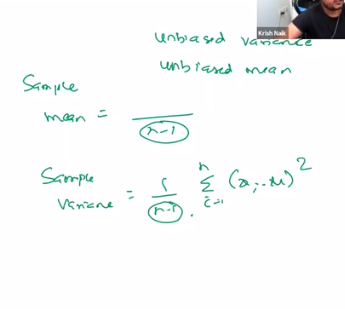 Krish Naik
unbiased variance
unbiased mean
Sample
mean = ___
n-1
Sample
Variance = 1/n-1 . n Σ i=1 (xi - μ)^2